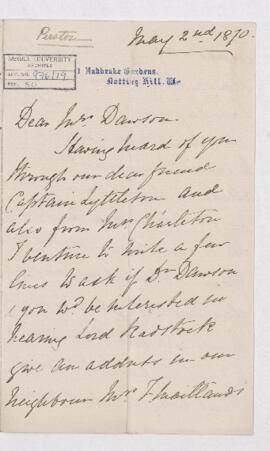 Preston
May 2nd 1870.
McGILL UNIVERSITY
ARCHIVES
ACC. NO. 976/19
REF. 50
1 Ladbroke Gardens.
Notting Hill. W.
Dear Mrs Dawson.
Having heard of you
through our dear friend
Captain Lyttleton and
also from Mrs Charleton
I venture to write a few
lines to ask if Dr. Dawson
& you wd be interested in
hearing Lord Radstock
give an address in our
neighbour Mrs F Maitlands